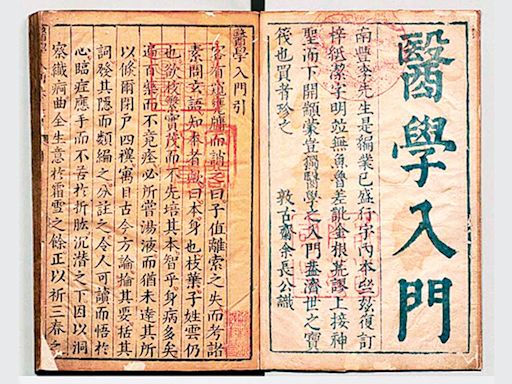 醫學入門
南豐李先生是編業已盛行宇內本坐茲復訂
梓紙潔字明並無魚魯差訛金根荒謬上接神
聖而下開顓蒙豈獨醫學之入門盡濟世之寶
筏也買者珍之
敦古齋余長公識
醫學入門引
客有窺甕牖而誚之曰子值離索之失而考諸
素問玄語知本者歟曰本身也枝葉子姓云仍
也欲枝繁實茂而不先培其本智乎身病多矣
適百藥而不竟痊必所嘗湯液而猶未達其所
以候爾閉戶四禩寓目古今方論掄其要括其
詞發其隱而類編之分註之令人可讀而悟於
心臨症應手而不苦於折肱沉潛之下因以洞
察纖痾曲全生意於霜雪之餘正以祈三春之